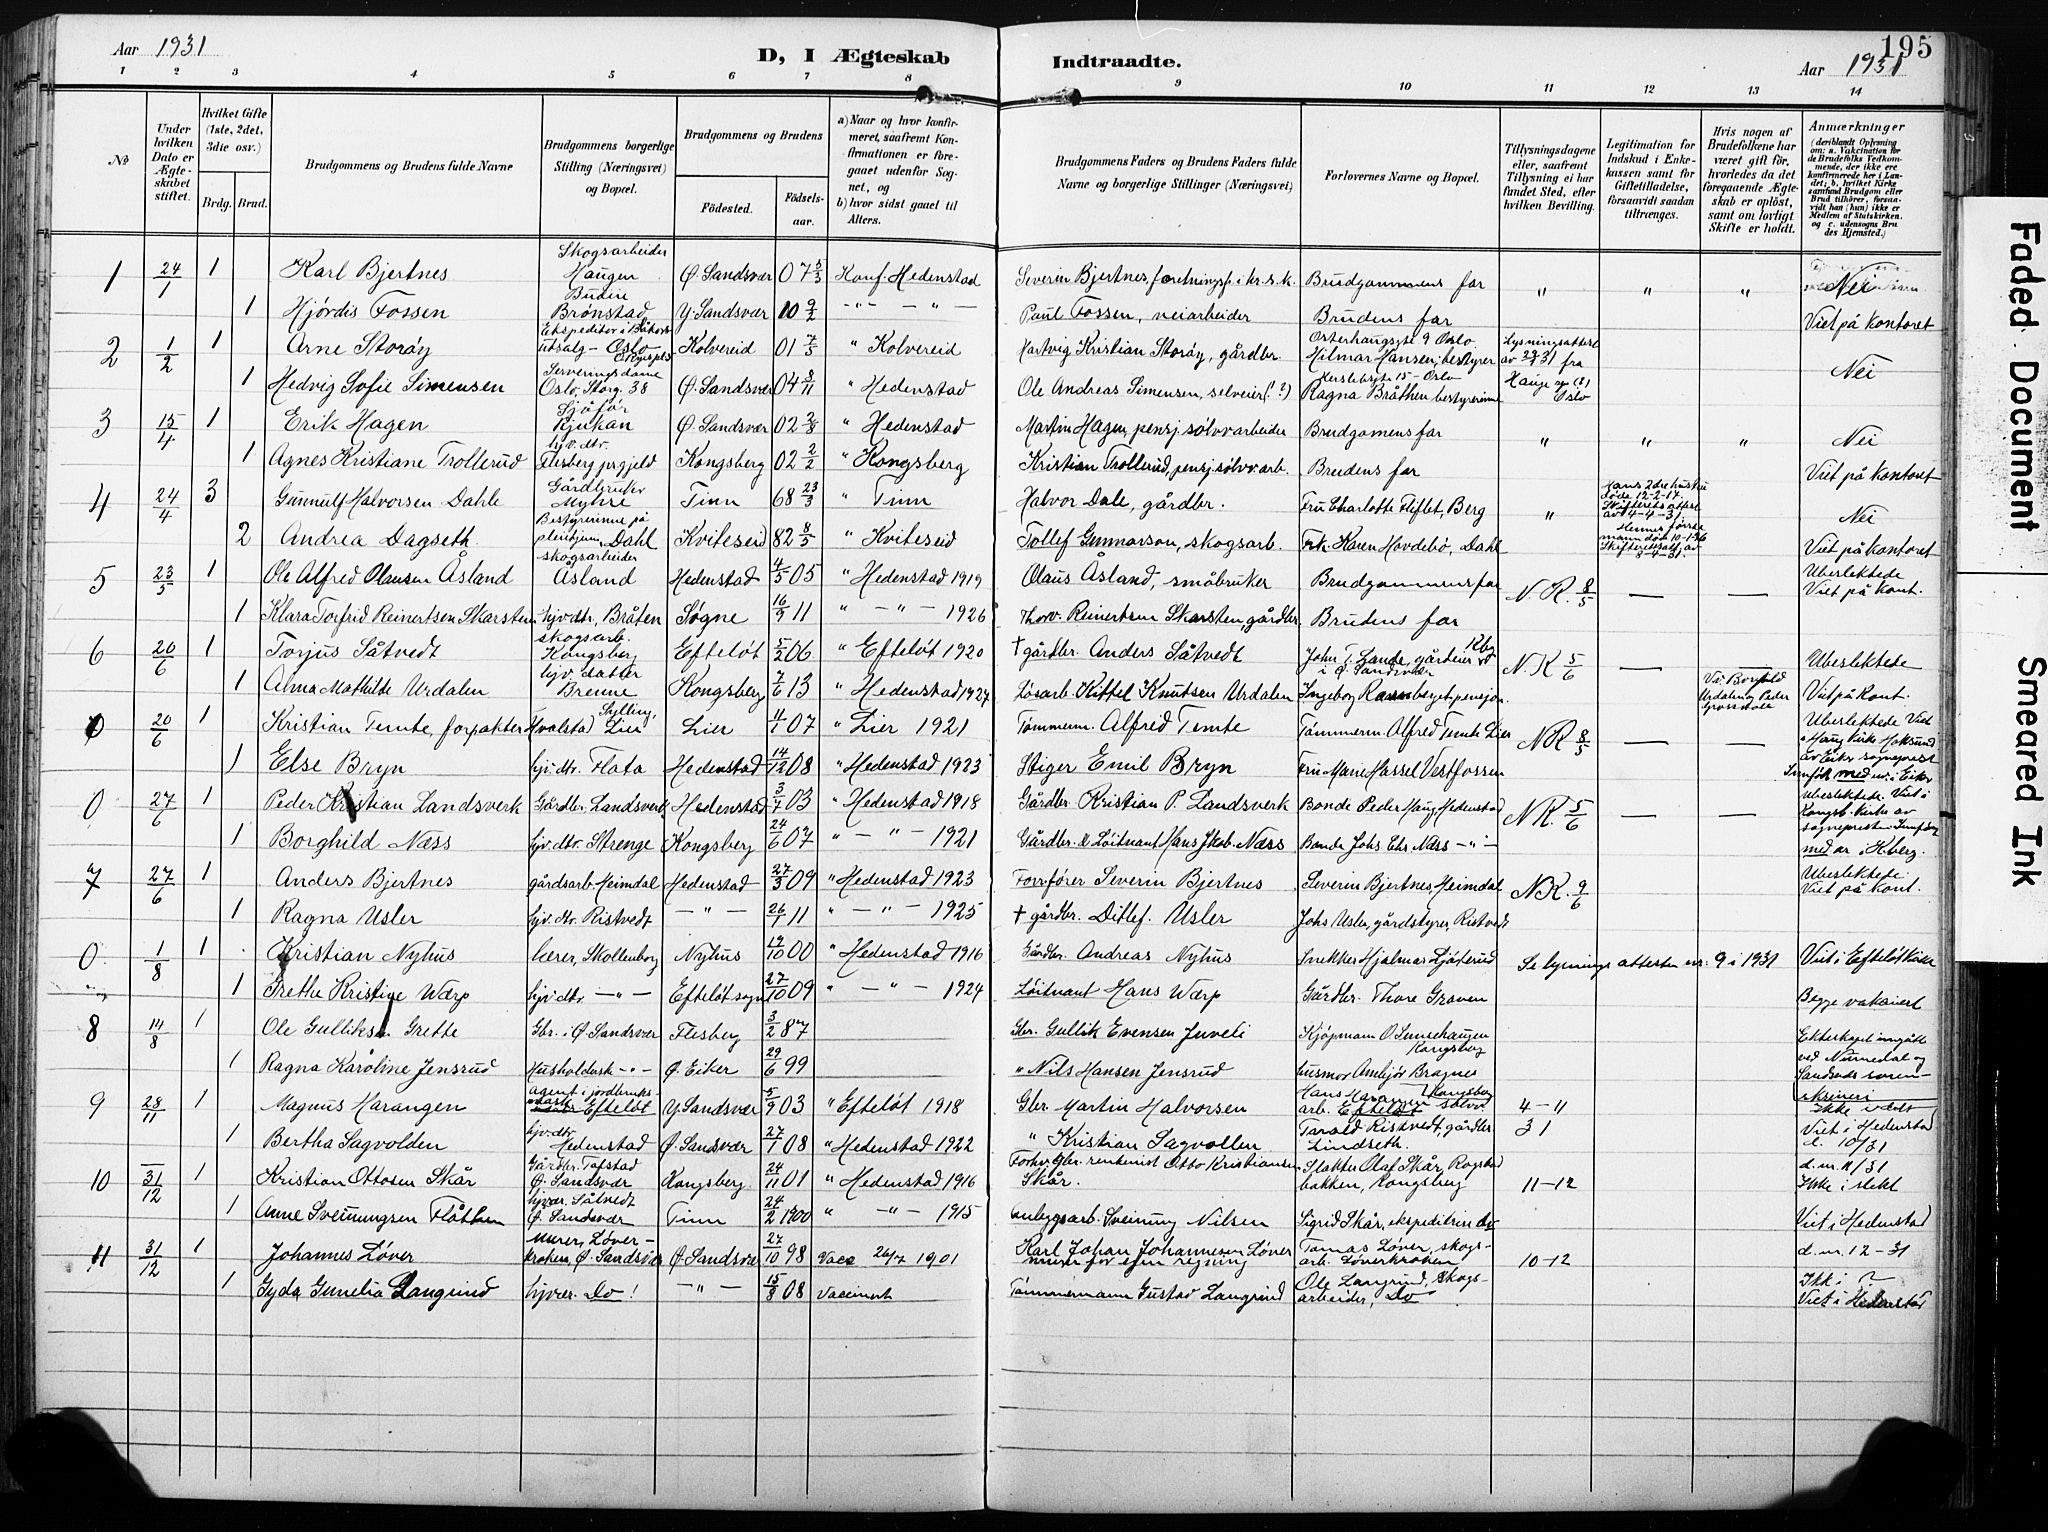 Aar 1931
D, I Ægteskab
Indtraadte.
Aar 1931
195
1 2 3 4 5 6 7 8 9 10 11 12 13 14
No
Under hvilken Dato er Ægteskabet stiftet.
Hvilket Gifte (1ste, 2det, 3die osv.)
Brdg. Brud.
Brudgommens og Brudens fulde Navne
Brudgommens borgerlige Stilling (Næringsvei) og Bopæl.
Brudgommens og Brudens
Fødested.
Fødselsaar.
a) Naar og hvor konfirmeret, saafremt Konfirmationen er foregaaet udenfor Sognet, og
b) hvor sidst gaaet til Alters.
Brudgommens Faders og Brudens Faders fulde Navne og borgerlige Stillinger (Næringsvei)
Forlovernes Navne og Bopæl.
Tillysningsdagene eller, saafremt Tillysning ei har fundet Sted, efter hvilken Bevilling.
Legitimation for Indskud i Enkekassen samt for Giftetilladelse, forsaavidt saadan tiltrænges.
Hvis nogen af Brudefolkene har været gift før, hvorledes da det foregaaende Ægteskab er opløst, samt om lovligt Skifte er holdt.
Anmærkninger (deriblandt Oplysning om: a. Vakcination for de Brudefolks Vedkommende, der ikke ere konfirmerede her i Landet; b. hvilket Kirkesamfund Brudgom eller Brud tilhører, forsaavidt han (hun) ikke er Medlem af Statskirken, og c. udensogns Brudes Hjemsted.)
1 24/1 1 Karl Bjertnes Skogsarbeider Haugen Ø. Sandsvær 07 5/3 Konf. Hedenstad Severin Bjertnes, forretningsf. i kr.s.k. Brudgommens far " " " Nei
1 Hjørdis Fossen Budeie Brønstad Y. Sandsvær 10 9/2 Paul Fossen, veiarbeider Brudens far Viet på kontoret
2 1/2 1 Arne Storøy Ekspeditør i utsalg - Oslo Kolvereid 01 7/5 " Kolvereid Hartvig Kristian Storøy, gårdbr. Osterhausgt 9 Oslo Hilmar Hansen, bestyrer Lysningsattest av 29/1 31 fra Hauge Oslo Nei
1 Hedvig Sofie Simensen Serveringsdame Oslo, Storg. 38 Ø. Sandsvær 04 8/11 " Hedenstad Ole Andreas Simensen, selveier (??) Herslebsgt 15 - Oslo Ragna Bråthen bestyrerinne
3 15/4 1 Erik Hagen Sjåfør Rjukan Ø. Sandsvær 02 2/8 " Hedenstad Martin Hagen, pensj. sølvarbeider Brudgomens far " " " Nei
1 Agnes Kristiane Trollerud hjv. dtr. Flesberg prgjeld Kongsberg 02 2/2 " Kongsberg Kristian Trollerud, pensj. sølvv. arb. Brudens far Viet på kontoret
4 24/4 3 Gunnulf Halvorsen Dahle Gårdbruker Myhre Tinn 68 23/3 " Tinn Halvor Dale, gårdbr. Fru Charlotte Fliflet, Berg " Hans 2dre hustru døde 12-2-17. Skifteretsattest av 4-4-31. Nei
2 Andrea Dagseth Bestyrerinne på pleiehjem, Dahl Kviteseid 82 8/5 " Kviteseid Tollef Gunnarson, skogsarb. Frk. Karen Hovdebø, Dahl Hennes første mann død 10-1-26 Skifteretsatt. av Viet på kontoret
5 23/5 1 Ole Alfred Olausen Åsland skogsarbeider Åsland Hedenstad 4/5 05 " Hedenstad 1919 Olaus Åsland, småbruker Brudgommens far N.K. 8/5 — — Ubeslektede Viet på kont.
1 Klara Torfrid Reinertsen Skarsten hjv. dtr. Bråten Søgne 16/9 11 " — " — 1926 Thorv. Reinertsen Skarsten, gårdbr. Brudens far
6 20/6 1 Torjus Såtvedt skogsarb. Kongsberg Efteløt 5/2 06 " Efteløt 1920 † gårdbr. Anders Såtvedt John T. Lande, gårdeier Kbg i Ø. Sandsvær N.K 5/6 — — Ubeslektede
1 Alma Mathilde Urdalen hjv. datter Brenne Kongsberg 7/6 13 " Hedenstad 1927 Løsarb. Kittel Knutsen Urdalen Ingeborg Ravnberget pensjon. Viet på Kont.
0 20/6 1 Kristian Temte, forpakter Hvalstad, Sylling, Lier Lier 4/1 07 " Lier 1921 Tømmerm. Alfred Temte Tømmerm. Alfred Temte Lier N.K 8/5 — — Ubeslektede Viet i Haug Kirke Hokksund av Eiker sogneprest
1 Else Bryn hjv. dtr. Flata Hedenstad 14/12 08 " Hedenstad 1923 Stiger Emil Bryn Fru Marie Hassel Vestfossen Innført med nr. i Eiker
0 27/6 1 Peder Kristian Landsverk Gårdbr. Landsverk Hedenstad 3/7 03 " Hedenstad 1918 Gårdbr. Kristian P. Landsverk Bonde Peder Haug, Hedenstad N.K. 5/6 — — Ubeslektede. Viet i Kongsb. Kirke av
1 Borghild Næss hjv. dtr. Strenge Kongsberg 24/6 07 " — " — 1921 Gårdbr. & Løitnant Hans Jkob. Næss Bonde Johs. Chr. Næss — " — sognepresten Innført med nr. i Kberg.
7 27/6 1 Anders Bjertnes gårdsarb. Heimdal Hedenstad 27/3 09 " Hedenstad 1923 Forrfører Severin Bjertnes Severin Bjertnes, Heimdal N.K. 9/6 Ubeslektede. Viet på kont.
1 Ragna Usler hjv. dtr. Ristvedt — " — 26/7 11 " — " — 1925 † gårdbr. Ditlef. Usler Johs Usler, gårdstyrer, Ristvedt
0 1/8 1 Kristian Nyhus lærer, Skollenborg Nyhus 19/10 00 " Hedenstad 1916 Gårdbr. Andreas Nyhus Snekker Hjalmar Ljøterud Se lysningsattesten nr. 9 i 1931 Viet i Efteløt Kirke
1 Grethe Kristine Wærp hjv. dtr — " — Efteløt sogn 27/10 09 " — " — 1924 Løitnant Hans Wærp Gårdbr. Thore Graven Begge vaksinert
8 14/8 1 Ole Gulliksen Grette Gbr. i Ø. Sandsvær Flesberg 3/2 87 Gbr. Gullik Evensen Juveli Kjøpmann O. Kongsberg Ekteskapet inngått ved Numedal og
1 Ragna Karoline Jensrud Husholdersk — " — Ø. Eiker 29/6 99 " Nils Hansen Jensrud husmor Ambjør Bragnes Kongsberg Sandsvær sorenskriveri
9 28/11 1 Magnus Harangen agent i jordbruks- Efteløt Y. Sandsvær 5/9 03 " Efteløt 1918 Gbr. Martin Halvorsen Hans Harangen sølvv. arb. Efteløt 4 - " 31 Ikke i slekt
1 Bertha Sagvolden hjv. dtr Hedenstad Ø. Sandsvær 27/1 08 " Hedenstad 1922 " Kristian Sagvollen Tarald Ristvedt, gårdbr Lindseth. Viet i Hedenstad d. 10/31
10 31/12 1 Kristian Ottosen Skår Gårdbr. Tafstad Ø. Sandsvær Kongsberg 24/11 01 " Hedenstad 1916 Forhv. Gbr. Otto Kristiansen Skår. Slakter Olaf Skår, Rogstadbakken, Kongsberg 11-12 d. nr. 11/31 Ikke i slekt
1 Anne Sveinungsen Flåthen hjvær. Såtvedt Ø. Sandsvær Tinn 24/2 1900 " — " — 1915 anleggsarb. Sveinung Nilsen Sigrid Skår, ekspeditrise do Viet i Hedenstad
11 31/12 1 Johannes Løver murer, Løverkroken, Ø. Sandsvær Ø. Sandsvær 27/10 98 Vacc 26/7 1901 Karl Johan Johannesen Løver murer for egen regning Tomas Løver, skogsarb. Løverkroken 10-12 d. nr. 12-31
1 Gyda Gunelia Langrind hjvær. Do! — " — 15/8 08 Vaccinert Tømmermann Gustav Langrind Ole Langrind, skogsarbeider, Do Ikke i Viet i Hedenstad
Faded Document
Smeared Ink